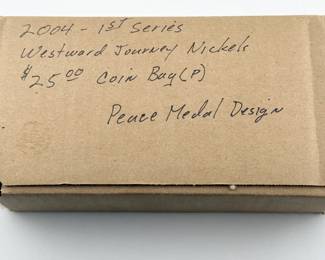 2004 - 1ST Series
Westward Journey Nickels
$25.00 Coin Bag (P)
Peace Medal Design